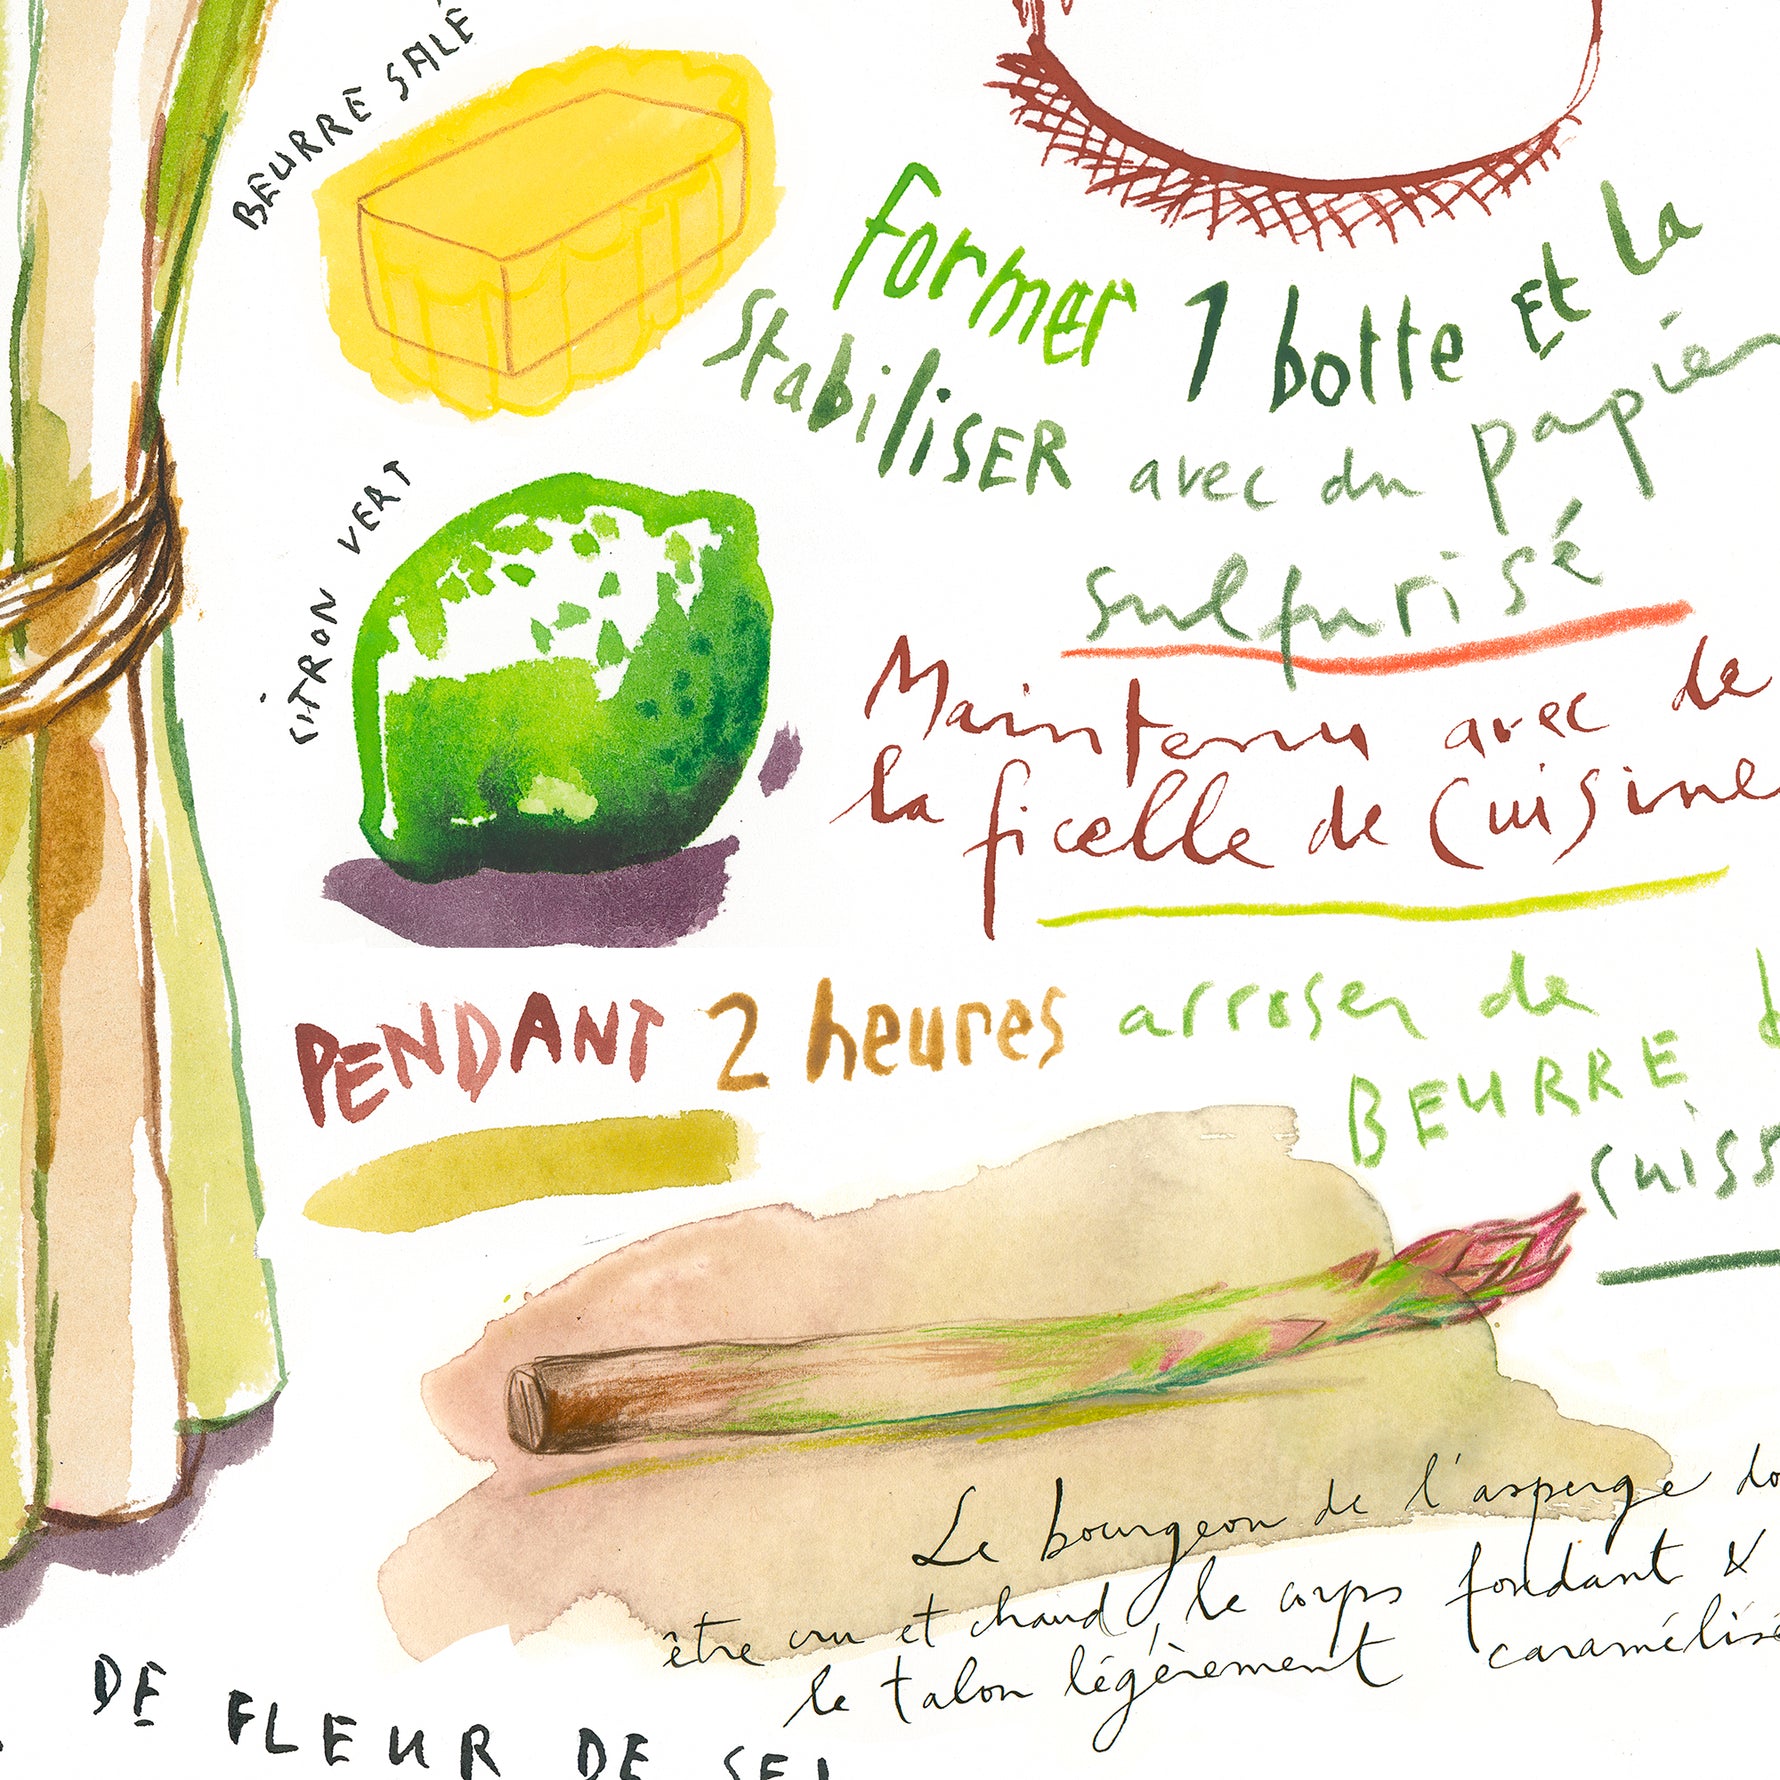 BEURRE SALÉ
former 1 botte Et la
stabiliSER avec du papier
sulfurisé
CITRON VERT
Maintenu avec de
la ficelle de Cuisine
PENDANT 2 heures arroser de
BEURRE
Le bourgeon de l'asperge
être cru et chaud, le corps fondant &
le talon légèrement caramélisé
DE FLEUR DE SEL